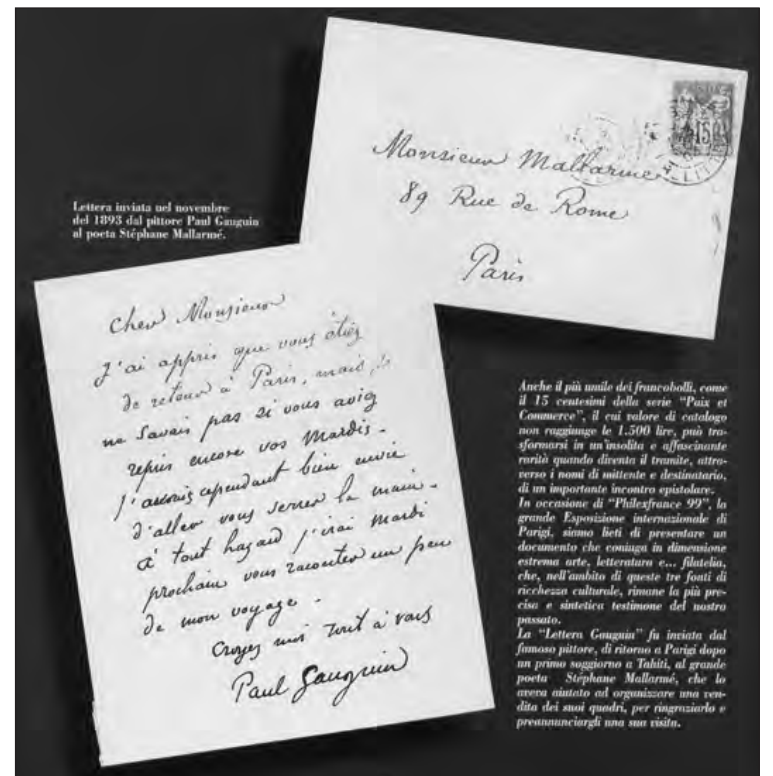 Monsieur Mallarmé
89 Rue de Rome
Paris
15
Lettera inviata nel novembre
del 1893 dal pittore Paul Gauguin
al poeta Stéphane Mallarmé.
Cher Monsieur
J'ai appris que vous étiez
de retour à Paris, mais, je
ne savais pas si vous aviez
repris encore vos Mardis -
J'aurais cependant bien envie
d'aller vous serrer la main -
à tout hazard j'irai mardi
prochain vous raconter un peu
de mon voyage -
Croyez moi tout à vous
Paul Gauguin
Anche il più umile dei francobolli, come
il 15 centesimi della serie "Paix et
Commerce", il cui valore di catalogo
non raggiunge le 1.500 lire, può tra-
sformarsi in un'insolita e affascinante
rarità quando diventa il tramite, attra-
verso i nomi di mittente e destinatario,
di un importante incontro epistolare.
In occasione di "Philexfrance 99", la
grande Esposizione internazionale di
Parigi, siamo lieti di presentare un
documento che coniuga in dimensione
estrema arte, letteratura e... filatelia,
che, nell'ambito di queste tre fonti di
ricchezza culturale, rimane la più pre-
cisa e sintetica testimone del nostro
passato.
La "Lettera Gauguin" fu inviata dal
famoso pittore, di ritorno a Parigi dopo
un primo soggiorno a Tahiti, al grande
poeta Stéphane Mallarmé, che lo
aveva aiutato ad organizzare una ven-
dita dei suoi quadri, per ringraziarlo e
preannunciargli una sua visita.